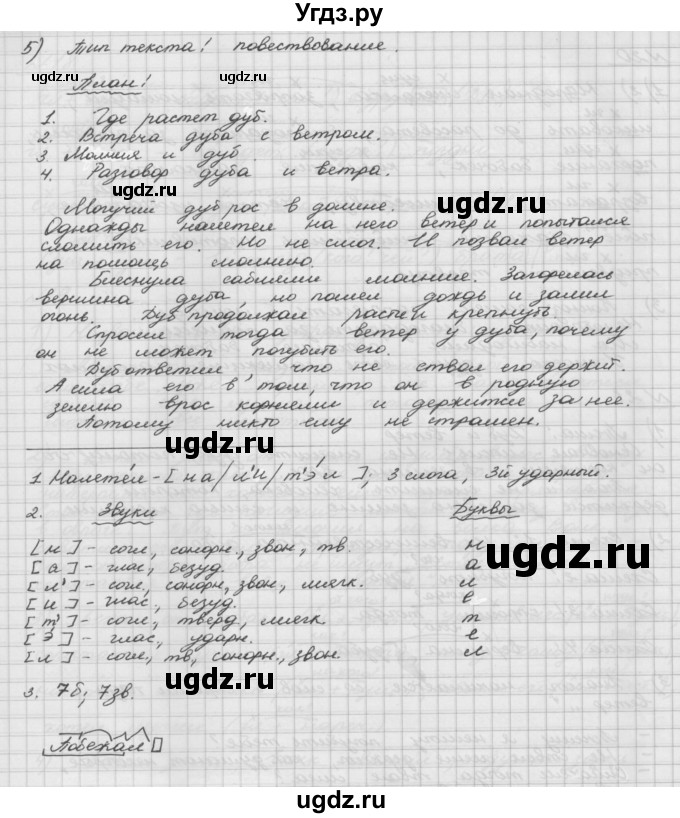 Угдз.ру
5) Тип текста: повествование.
План:
1. Где растет дуб.
2. Встреча дуба с ветром.
3. Молния и дуб.
4. Разговор дуба и ветра.
Могучий дуб рос в долине.
Однажды налетел на него ветер и попытался
сломить его. Но не смог. И позвал ветер
на помощь молнию.
Блеснула саблями молния. Загорелась
вершина дуба, но пошел дождь и залил
огонь. Дуб продолжал расти и крепнуть.
Спросил тогда ветер у дуба, почему
он не может погубить его.
Дуб ответил, что не ствол его держит.
А сила его в том, что он в родную
землю врос корнями и держится за нее.
Потому никто ему не страшен.
1 Налетéл - [на/л'и/т'э́л]; 3 слога, 3й ударный.
2. Звуки Буквы
[н] - согл, сонорн., звон, тв. н
[а] - глас, безуд. а
[л'] - согл, сонорн, звон, мягк. л
[и] - глас, безуд. е
[т'] - согл., тверд, мягк. т
[э́] - глас, ударн. е
[л] - согл, тв, сонорн., звон. л
3. 7б, 7зв.
Побежал
uzgdz.ru
uzgdz.ru
uzgdz.ru
uzgdz.ru
uzgdz.ru
uzgdz.ru
uzgdz.ru
uzgdz.ru
uzgdz.ru